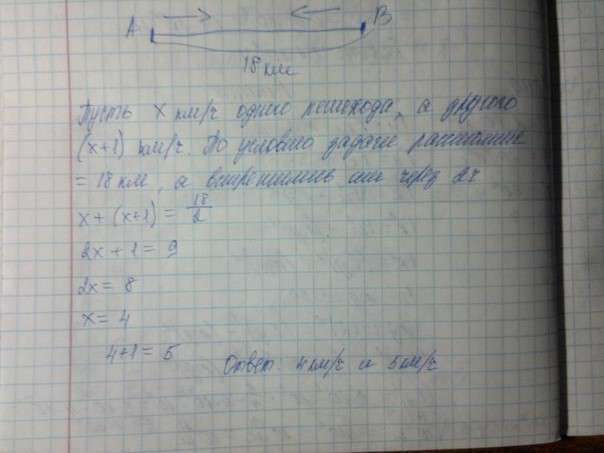 A B
18 км
Пусть x км/ч одного пешехода, а другого
(x+1) км/ч. По условию задаче расстояние
= 18 км, а встретились они через 2ч
x + (x+1) = 18/2
2x + 1 = 9
2x = 8
x = 4
4+1 = 5 Ответ 4 км/ч и 5 км/ч